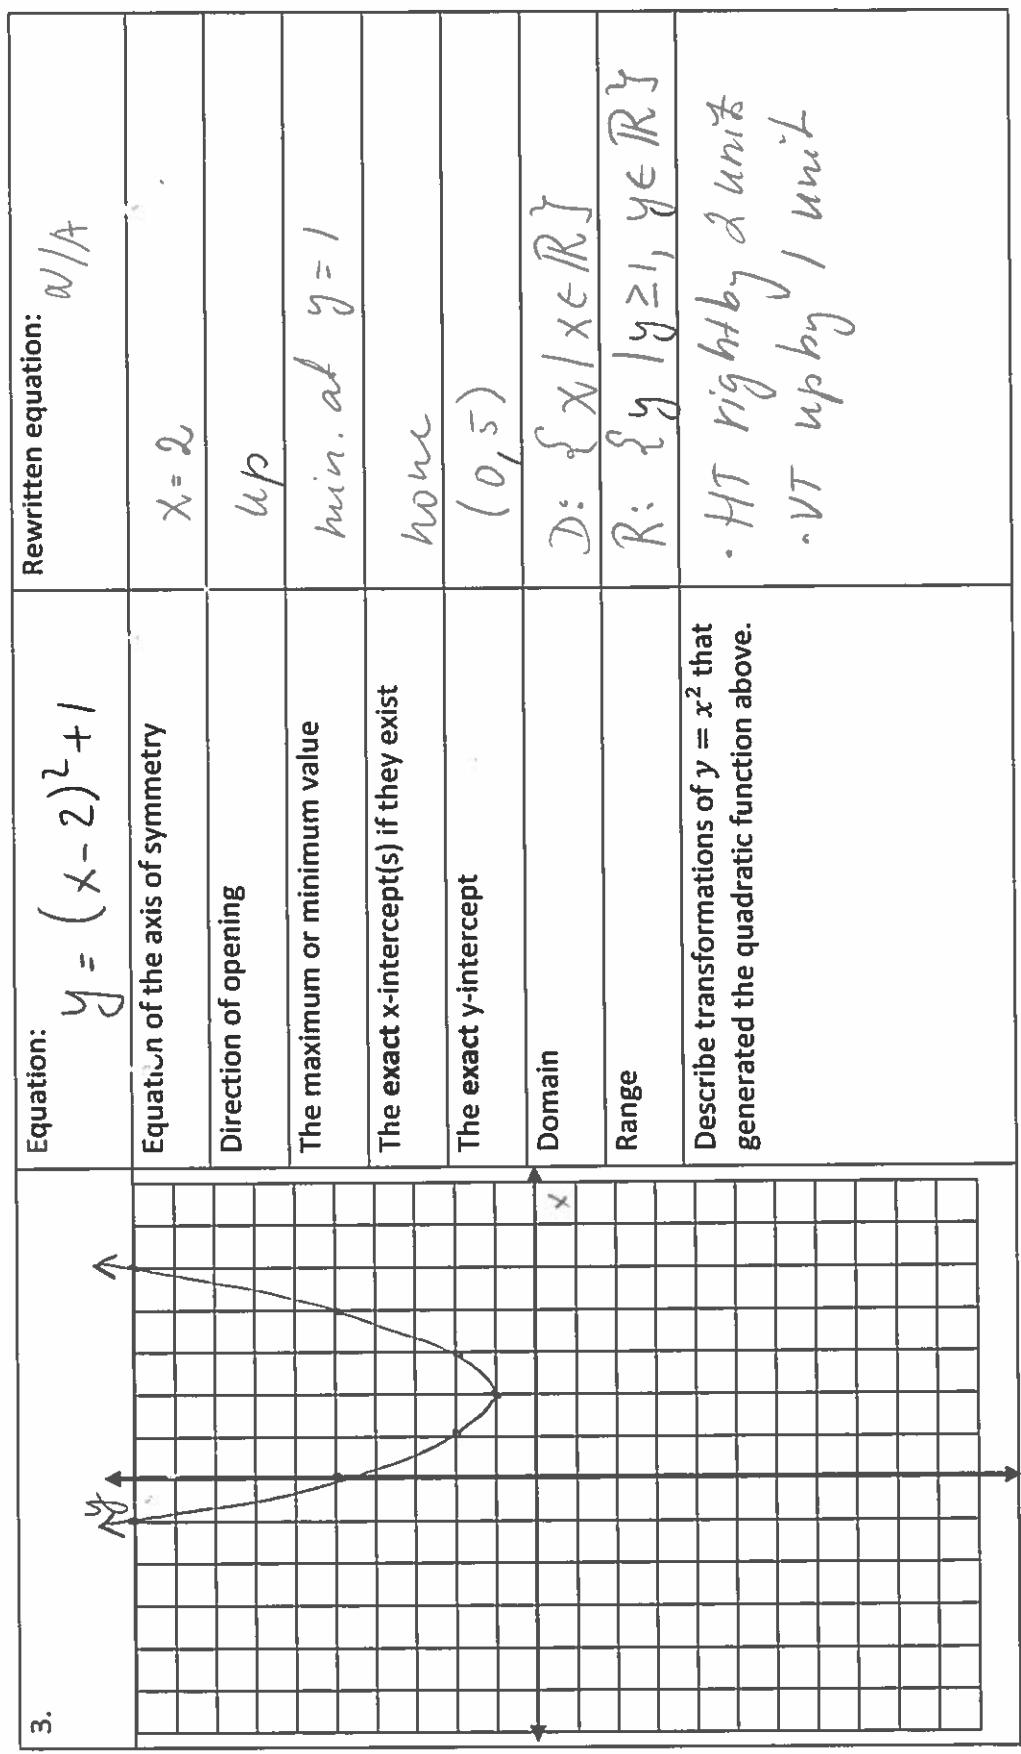 3.
Equation:
y = (x - 2)² + 1
Rewritten equation:
N/A
Equation of the axis of symmetry
x = 2
Direction of opening
up
The maximum or minimum value
min. at y = 1
The exact x-intercept(s) if they exist
none
The exact y-intercept
(0, 5)
Domain
D: { x | x ∈ ℝ }
Range
R: { y | y ≥ 1, y ∈ ℝ }
Describe transformations of y = x² that
generated the quadratic function above.
· HT right by 2 units
· VT up by 1 unit
y
x